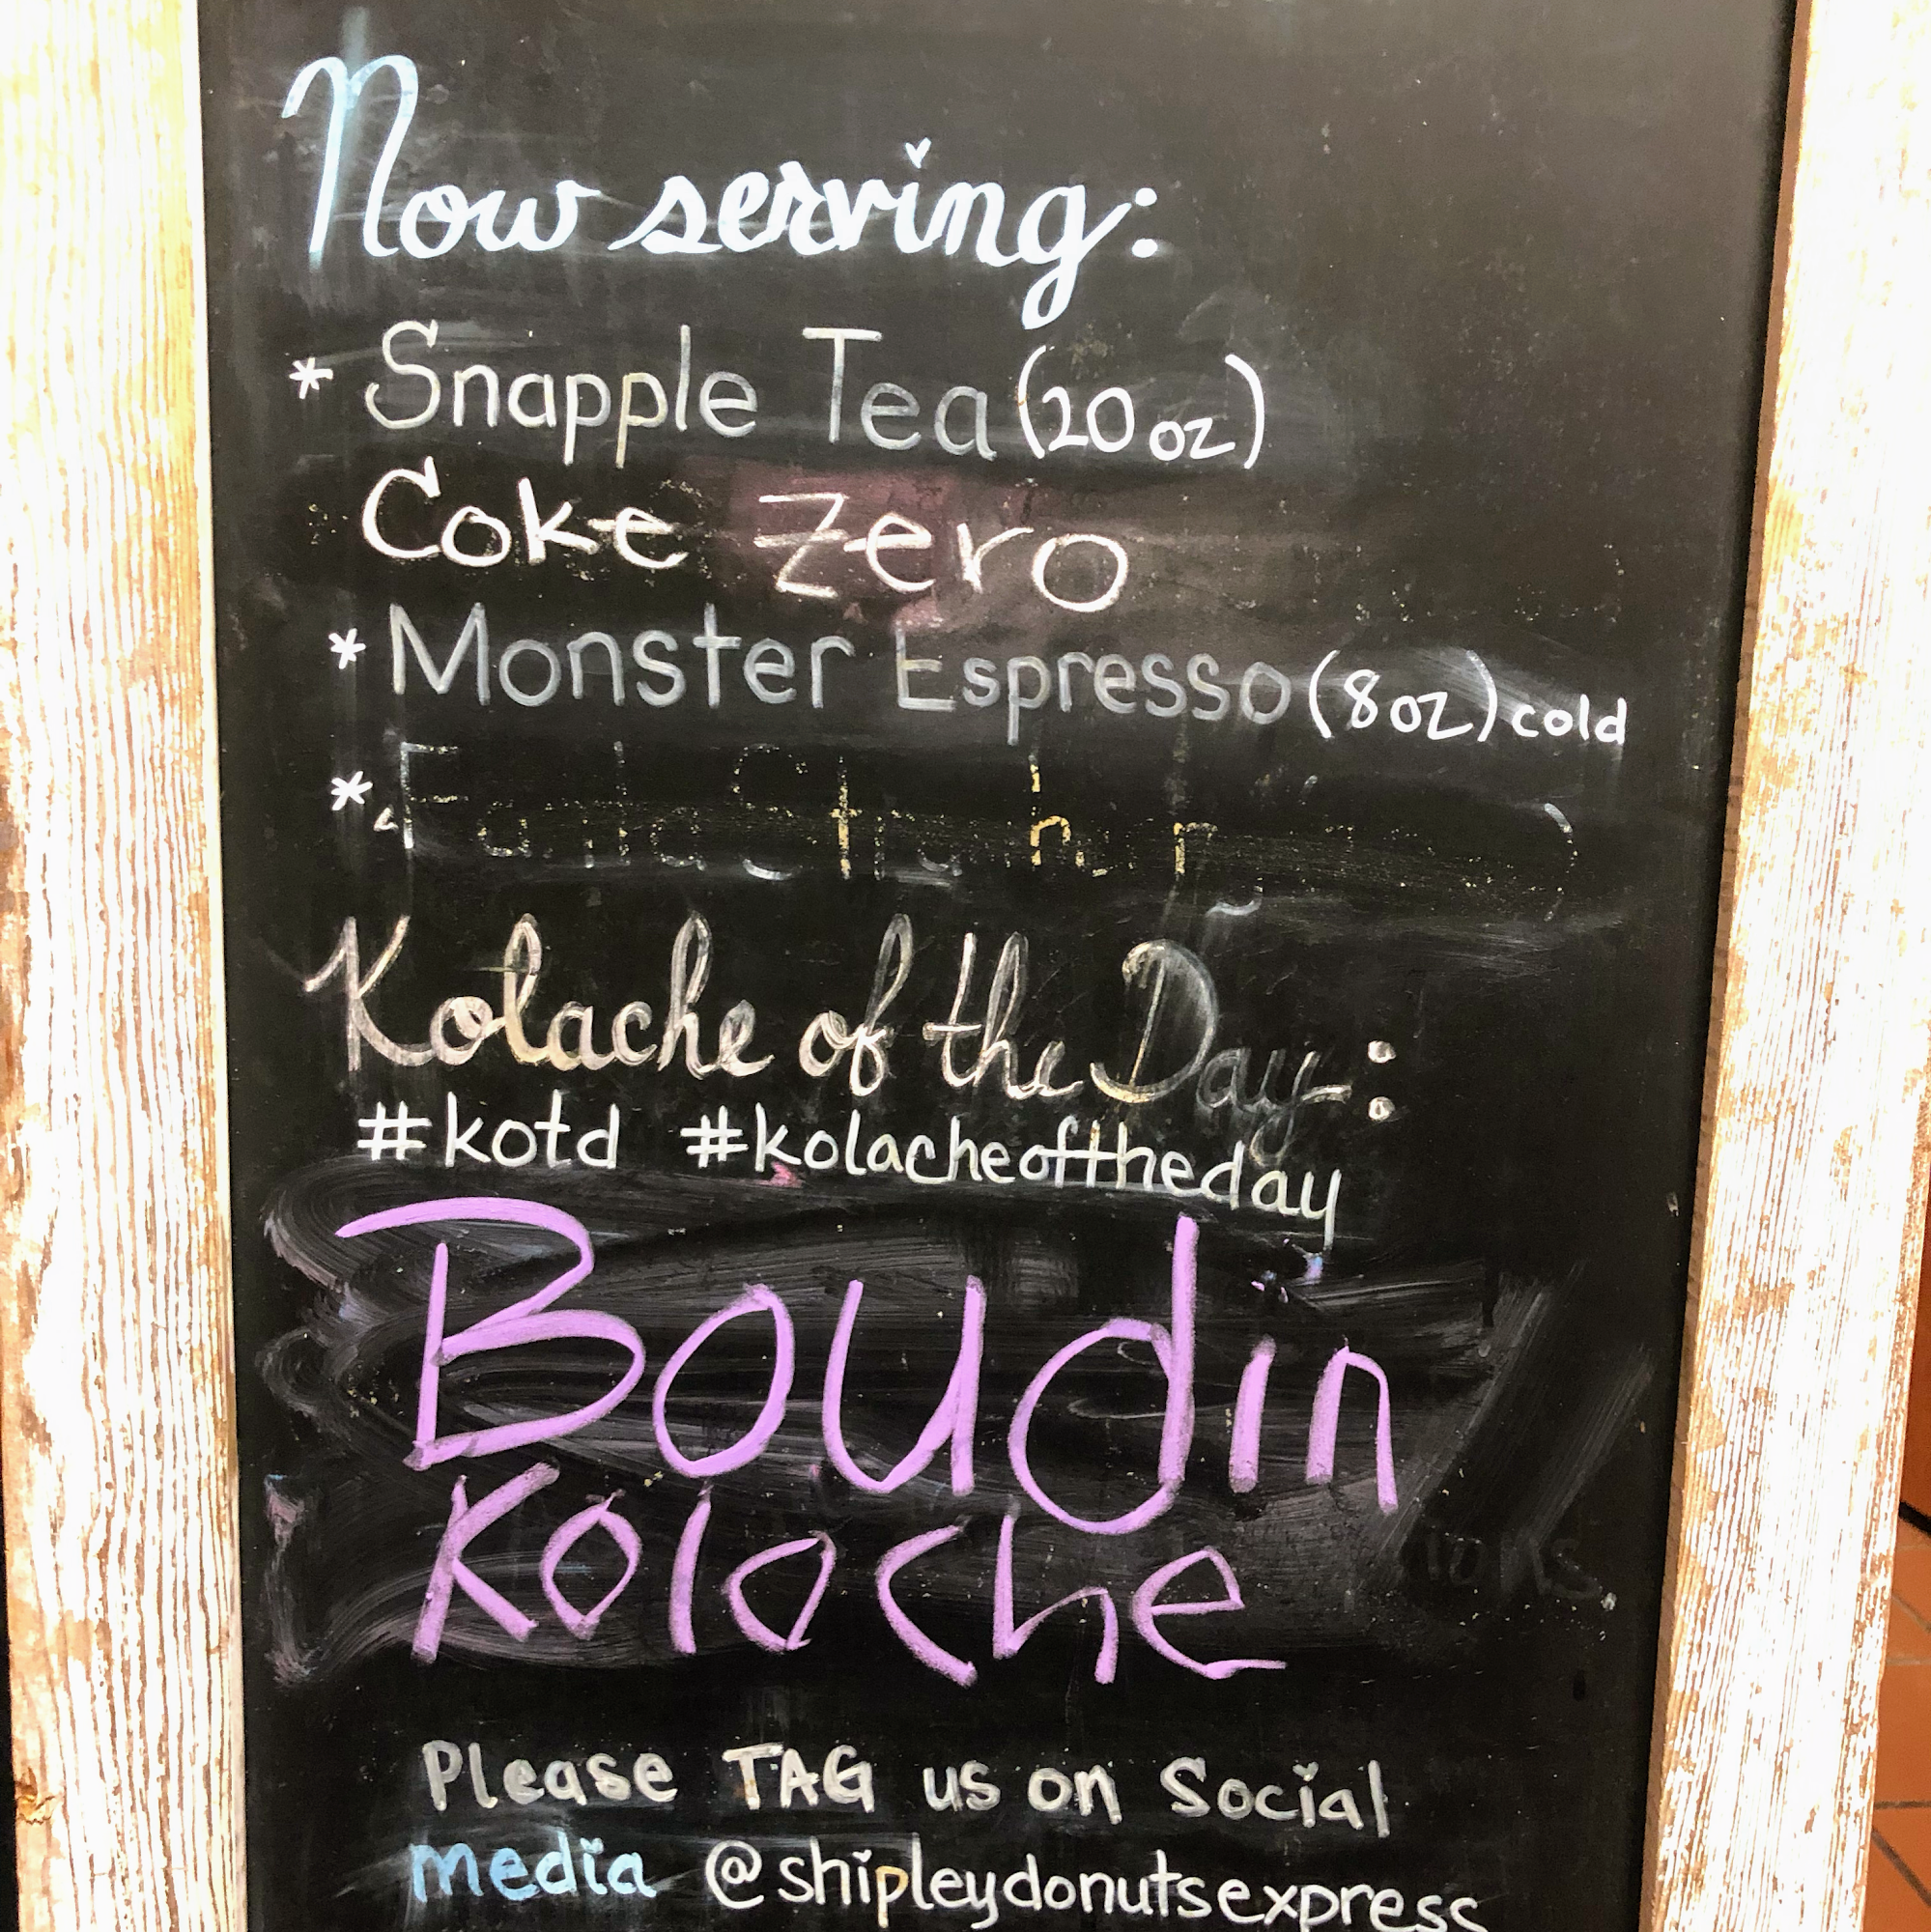 Now serving:
* Snapple Tea (20 oz)
Coke Zero
* Monster Espresso (8 oz) cold
*
Kolache of the Day:
#kotd #kolacheoftheday
Boudin
Kolache
Please TAG us on Social
media @shipleydonutsexpress